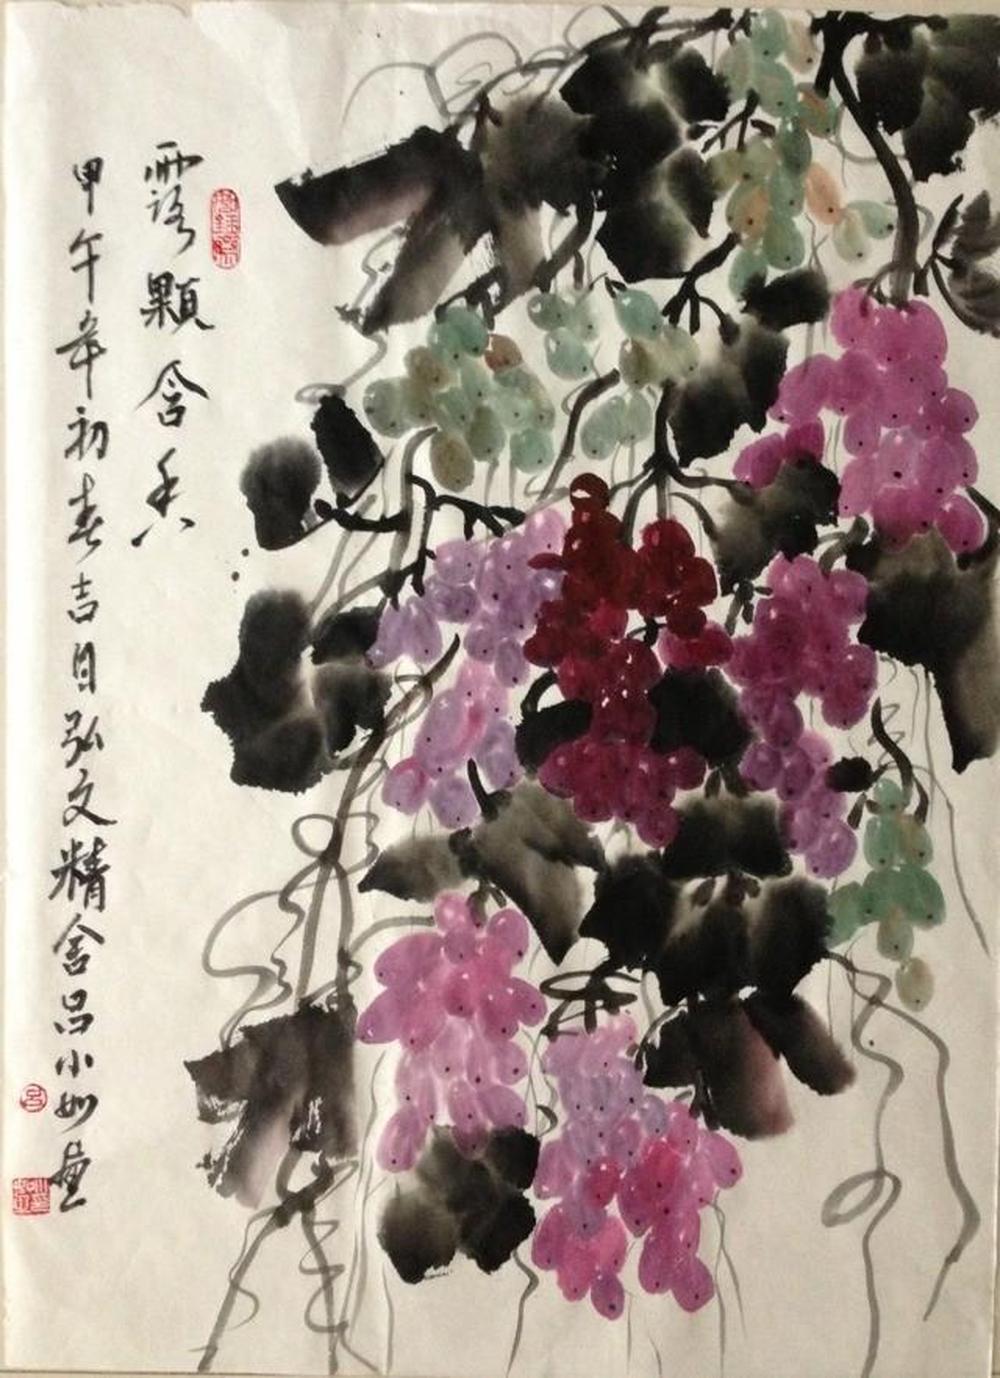 露顆含香
甲午年初春吉日弘文精舍吕小如画